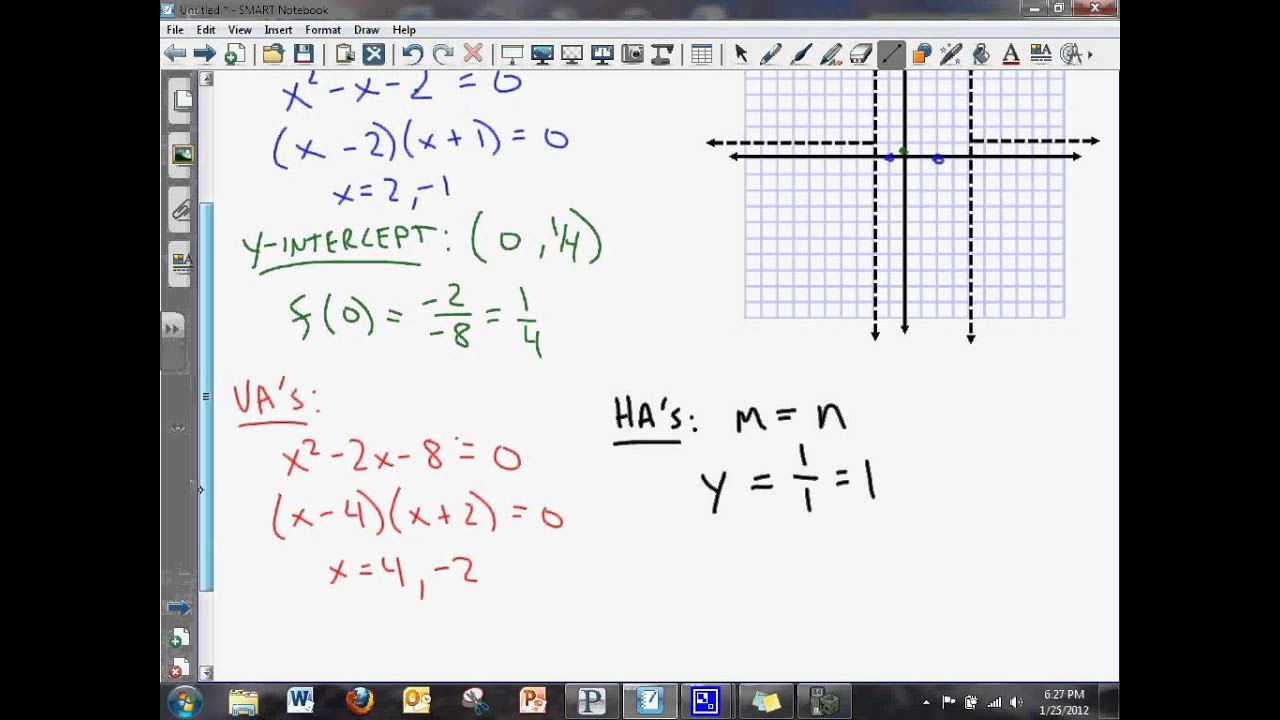 Untitled * - SMART Notebook
File Edit View Insert Format Draw Help
x² - x - 2 = 0
(x - 2)(x + 1) = 0
x = 2, -1
Y-INTERCEPT: (0, 1/4)
f(0) = -2/-8 = 1/4
VA's:
x² - 2x - 8 = 0
(x - 4)(x + 2) = 0
x = 4, -2
HA's: m = n
y = 1/1 = 1
6:27 PM
1/25/2012